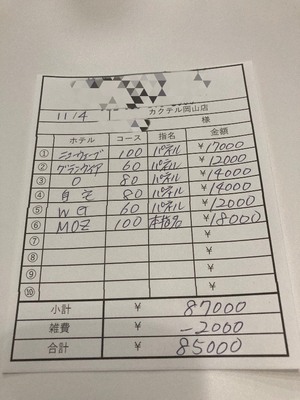 11/4 カクテル岡山店
様
ホテル コース 指名 金額
① ニューウェーブ 100 パネル ¥17000
② グランヴィア 60 パネル ¥12000
③ O 80 パネル ¥14000
④ 自宅 80 パネル ¥14000
⑤ WG 60 パネル ¥12000
⑥ MOZ 100 本指名 ¥18000
⑦ ¥
⑧ ¥
⑨ ¥
⑩ ¥
小計 ¥ 87000
雑費 ¥ -2000
合計 ¥ 85000